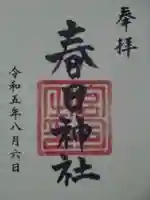 奉拝
春日神社
令和五年八月六日